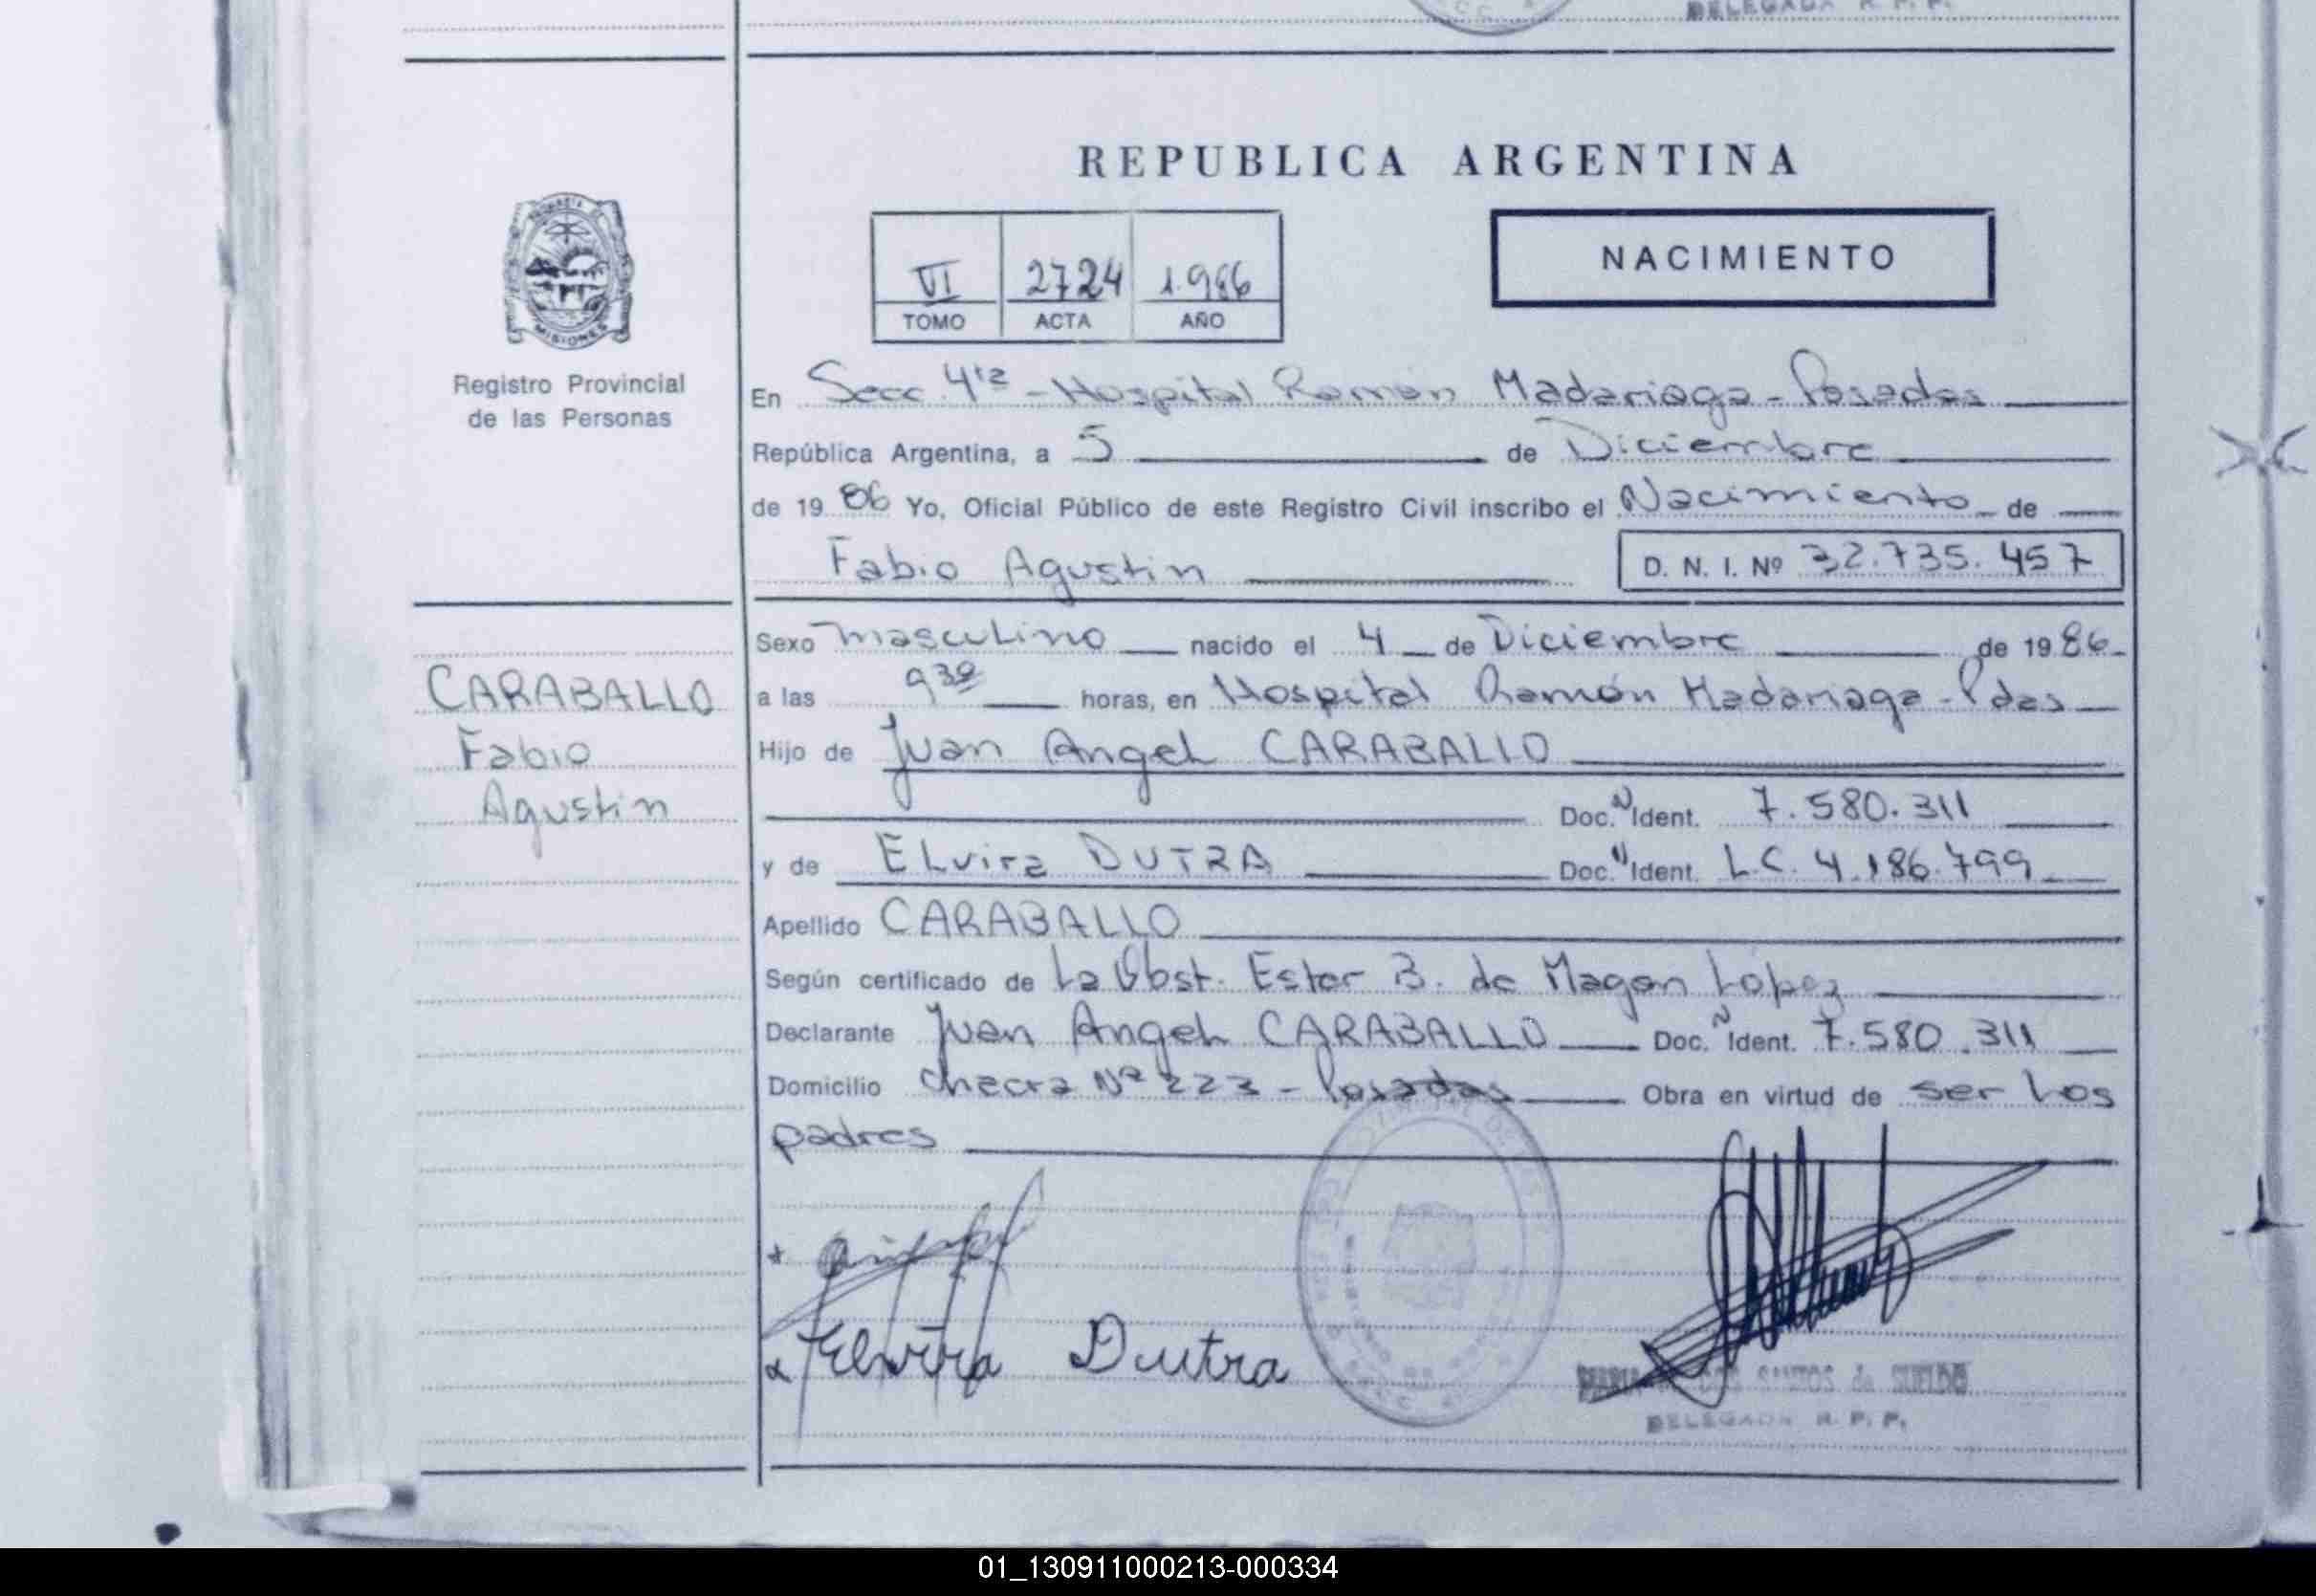 DELEGADA R. P. P.
REPUBLICA ARGENTINA
NACIMIENTO
VI 2724 1.986
TOMO ACTA AÑO
MISIONES
Registro Provincial
de las Personas
En Secc. 4ta - Hospital Ramón Madariaga - Posadas
República Argentina, a 5 de Diciembre
de 19 86 Yo, Oficial Público de este Registro Civil inscribo el Nacimiento de
Fabio Agustin D. N. I. Nº 32.735.457
CARABALLO
Fabio
Agustin
Sexo masculino nacido el 4 de Diciembre de 19 86
a las 9 30 horas, en Hospital Ramón Madariaga - Pdas
Hijo de Juan Angel CARABALLO
Doc. N Ident. 7.580.311
y de Elvira DUTRA Doc. N Ident. L.C. 4.186.799
Apellido CARABALLO
Según certificado de La Obst. Ester B. de Magan Lopez
Declarante Juan Angel CARABALLO Doc. N Ident. 7.580.311
Domicilio Chacra Nº 223 - Posadas Obra en virtud de ser los
padres
Elvira Dutra
DOS SANTOS de SUELDO
DELEGADA R. P. P.
01_130911000213-000334